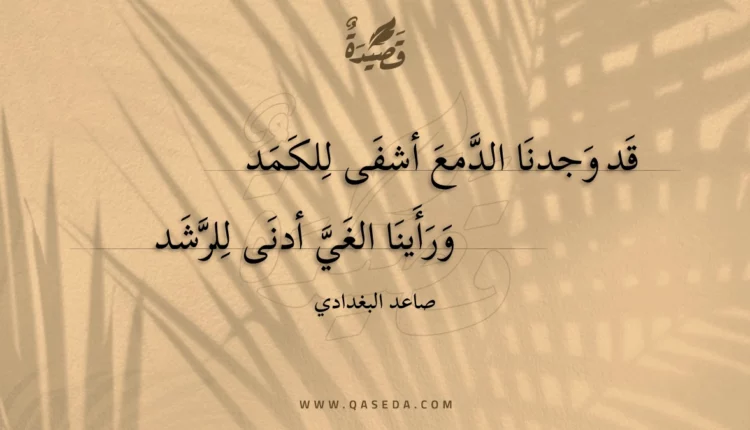 قَصِيْدَةٌ
قَد وَجدنَا الدَّمعَ أشفَى لِلكَمَد
وَرَأَينَا الغَيَّ أدنَى لِلرَّشَد
صاعد البغدادي
WWW.QASEDA.COM